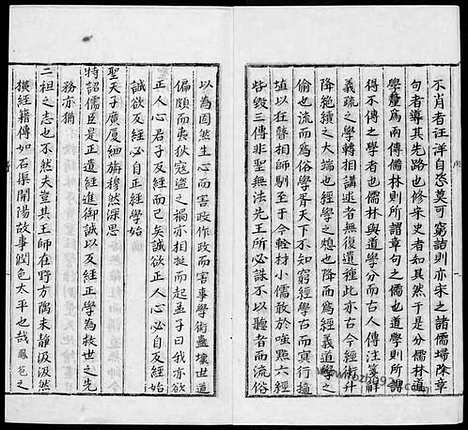 不肖者汪洋自恣莫可窮詰則亦宋之諸儒埽除章
句者導其先路也修宋史者知其然于是分儒林道
學釐為兩傳儒林則所謂章句之儒也道學則所謂
得不傳之學者也儒林與道學分而古人傳注箋解
義疏之學轉相講述者無復遺種此亦古今經術升
降絕續之大端也經學之熄也降而為經義道學之
偷也流而為俗學胥天下不知窮經學古而冥行擿
埴以狂瞽相師馴至于今輇材小儒敢於嗤點六經
呰毀三傳非聖無法先王所必誅不以聽者而流俗
以為固然生心而害政作政而害事學術蠱壞世道
偏頗而夷狄寇盜之禍亦相挺而起孟子曰我亦欲
正人心君子反經而已矣誠欲正人心必自反經始
誠欲反經必自正經學始
聖天子廣廈細旃穆然深思
特詔儒臣是正遺經進御誠以反經正學為救世之先
務亦猶
二祖之志也不然夫豈其王師在野方隅未靜汲汲然
橫經籍傳如石渠開陽故事潤色太平也哉鳳苞之